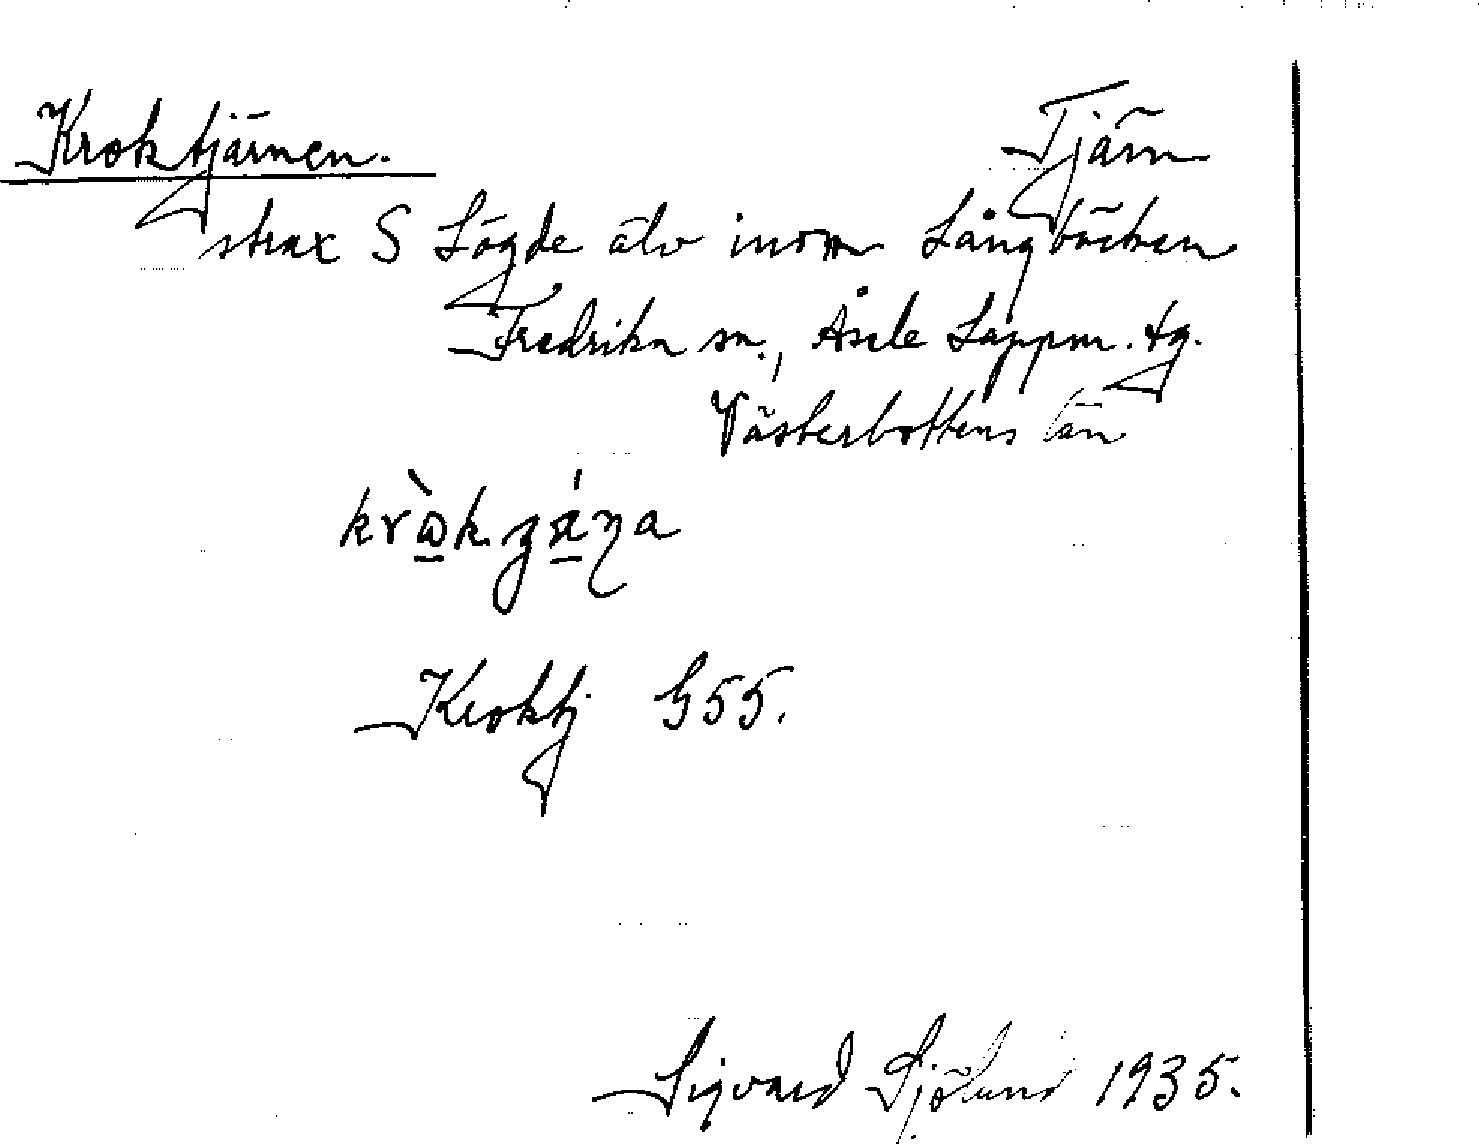 Kroktjärnen. Tjärn
strax S Lögde älv inom Långbäcken
Fredrika sn., Åsele Lappm. tg.
Västerbottens län
Kroktj G55.
Sigvard Sjölund 1935.